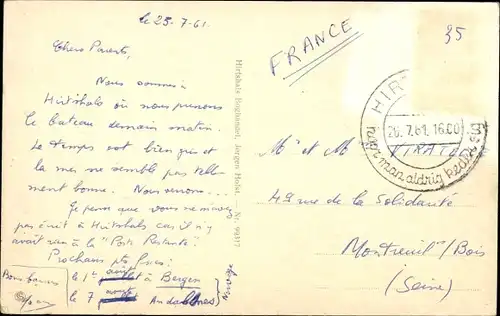 le 25-7-61.
Chers Parents,
Nous sommes à
Hirtshals où nous prenons
le bateau demain matin.
Le temps est bien gris et
la mer ne semble pas telle-
ment bonne. Nous verrons...
Je pense que vous ne m'avez
pas écrit à Hirtshals car il n'y
avait rien à la "Poste Restante"
Prochains pts fixes:
le 1er août à Bergen
le 7 août Andalsnes
Norvège
Bons baisers
Hirtshals Boghandel, Jørgen Holst. Nr. 99317
FRANCE
35
HIRT
20.7.61.16.00
man aldrig
Mr et Mme
49 rue de la Solidarité
Montreuil s/ Bois
(Seine)